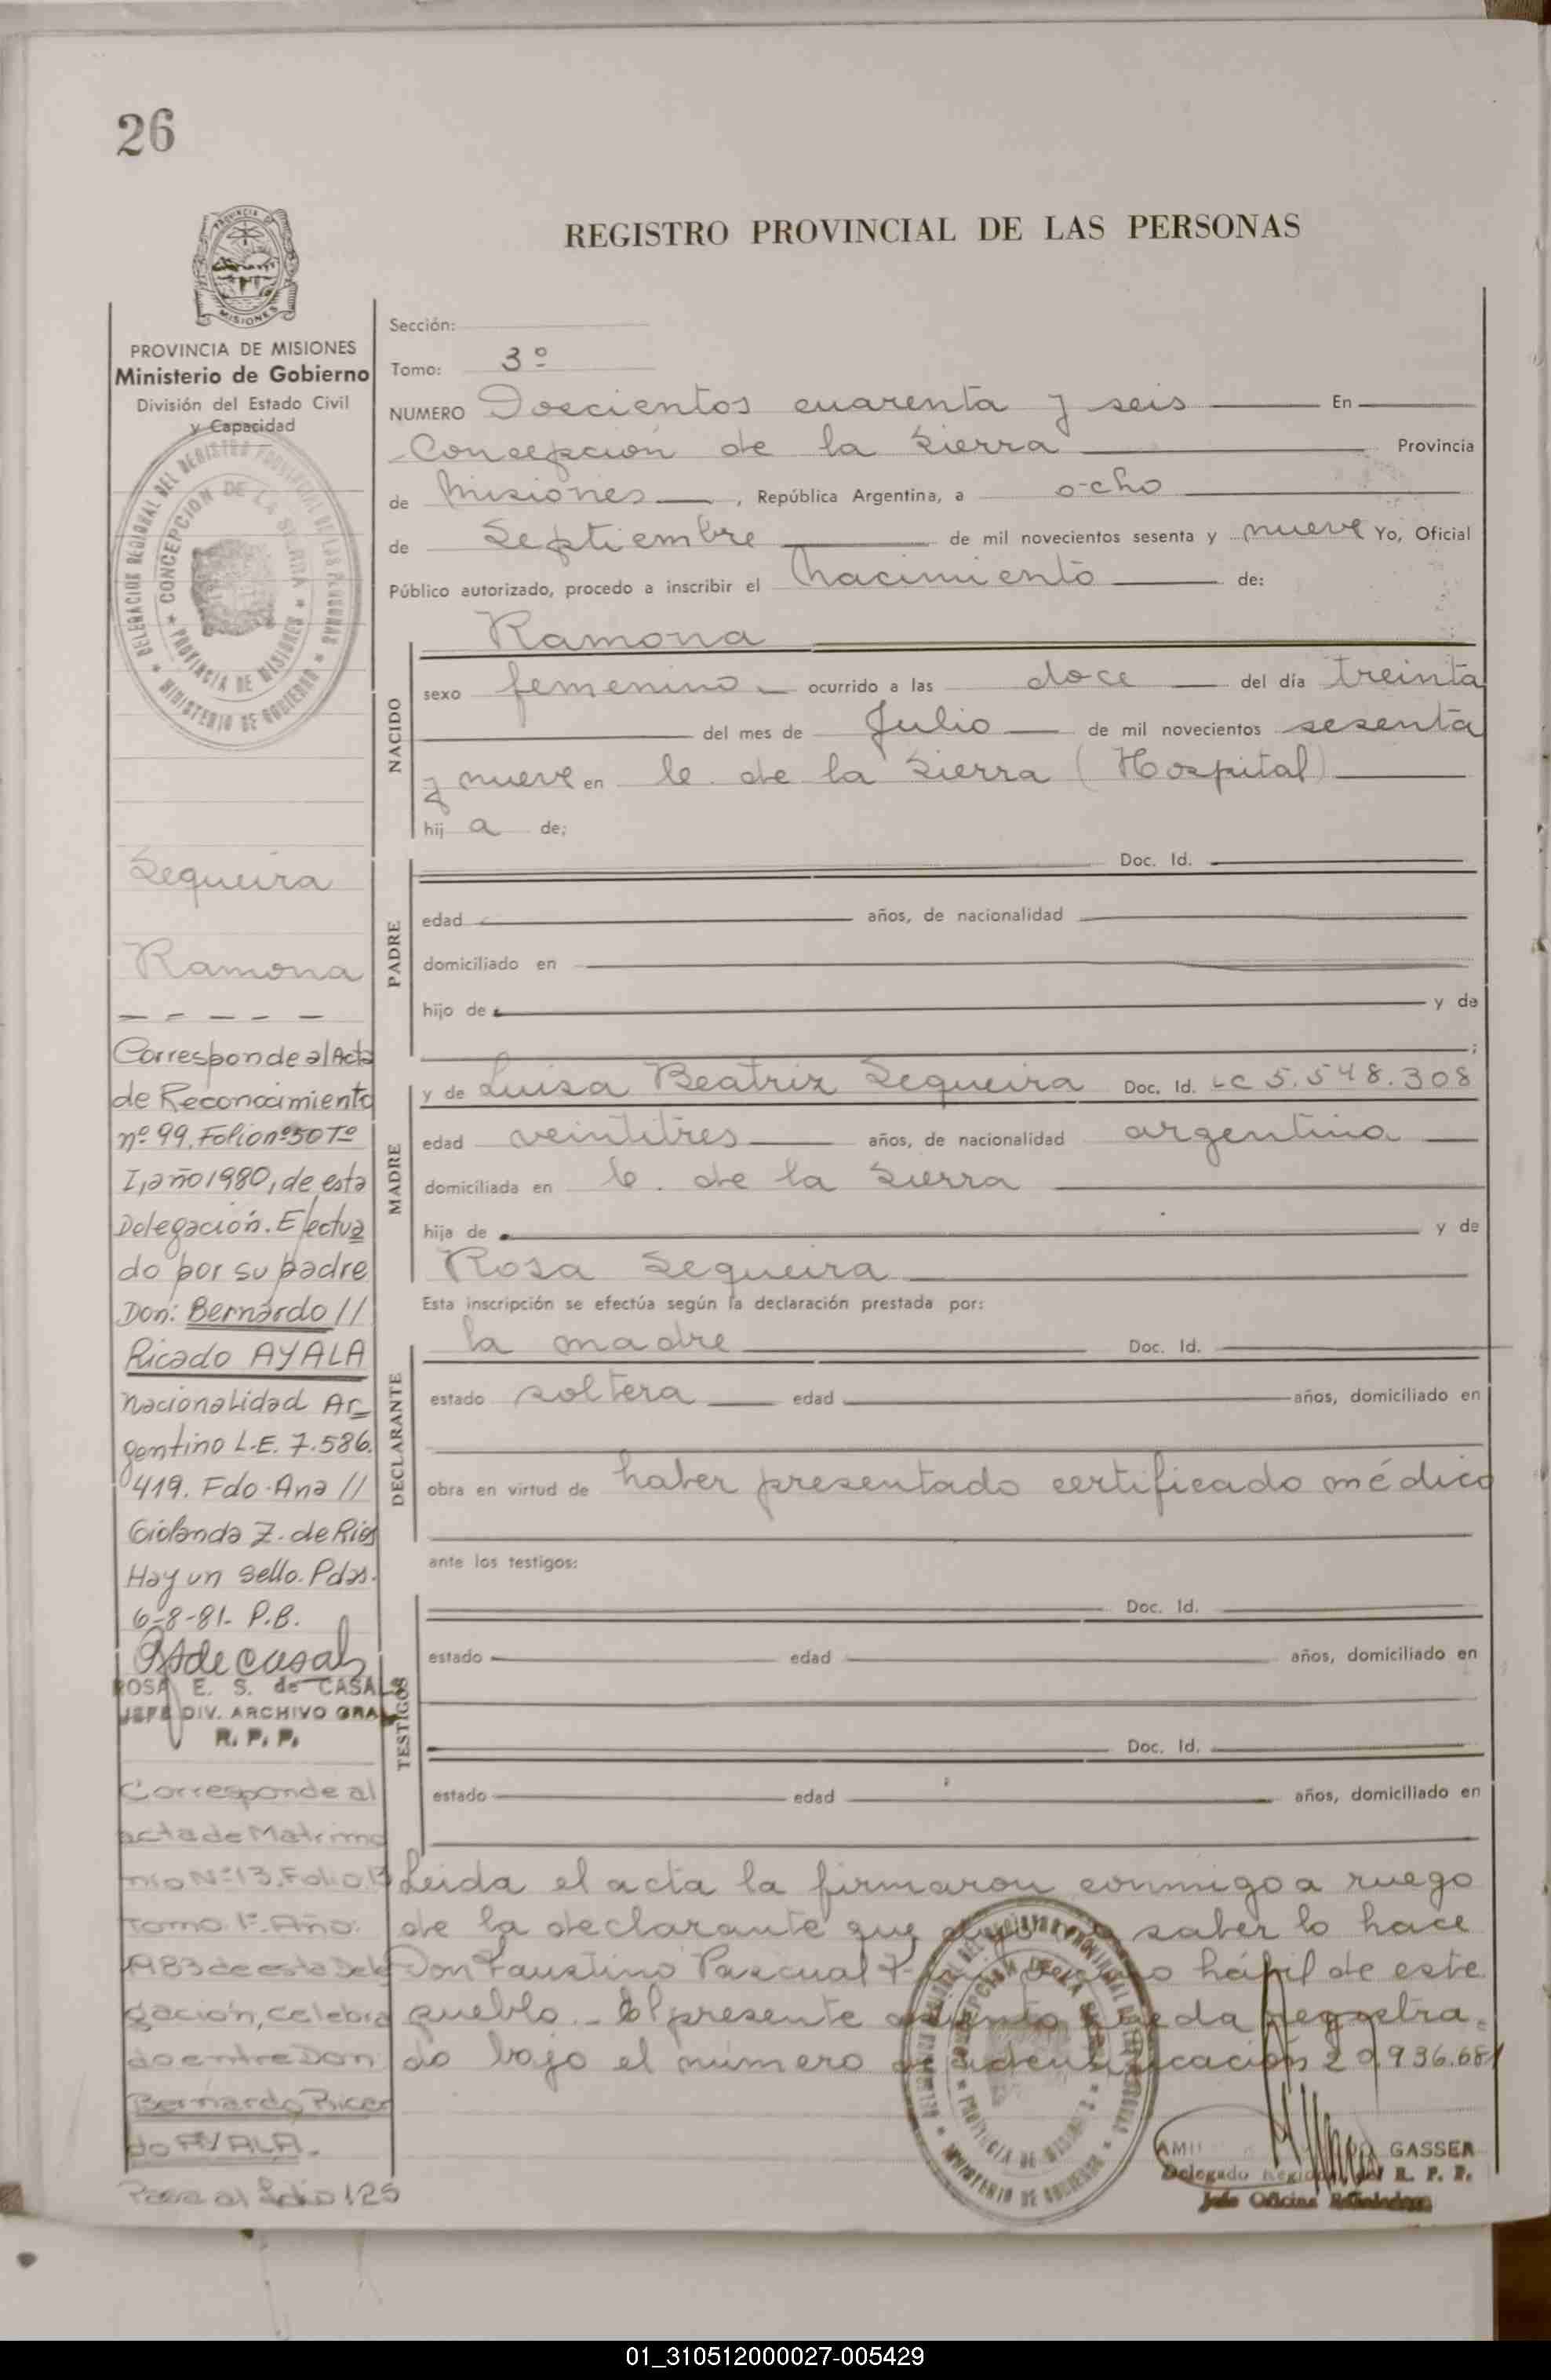 26
REGISTRO PROVINCIAL DE LAS PERSONAS
PROVINCIA DE
MISIONES
PROVINCIA DE MISIONES
Ministerio de Gobierno
División del Estado Civil
y Capacidad
DELEGACION REGIONAL DEL REGISTRO PROVINCIAL DE LAS PERSONAS
* CONCEPCION DE LA SIERRA *
PROVINCIA DE MISIONES
* MINISTERIO DE GOBIERNO *
Sequeira
Ramona
Corresponde al Acta
de Reconocimiento
nº 99, Folio nº 50 Tº
I, año 1980, de esta
Delegación. Efectua
do por su padre
Don: Bernardo //
Ricado AYALA
nacionalidad Ar_
gentino L.E. 7.586.
419. Fdo. Ana //
Giolanda Z. de Rios
Hay un sello. Pdas.
6-8-81- P.B.
ROSA E. S. de CASALS
JEFE DIV. ARCHIVO GRAL
R. P. P.
Corresponde al
acta de Matrimo
nio Nº 13, Folio 13
Tomo 1º Año:
1983 de esta Dele
gación, celebra
do entre Don
Bernardo Ricar
do AYALA.
Pasa al folio 125
Sección:
Tomo: 3º
NUMERO Doscientos cuarenta y seis En
Concepción de la Sierra Provincia
de Misiones , República Argentina, a ocho
de Septiembre de mil novecientos sesenta y nueve Yo, Oficial
Público autorizado, procedo a inscribir el Nacimiento de:
NACIDO
Ramona
sexo femenino ocurrido a las doce del día treinta
del mes de Julio de mil novecientos sesenta
y nueve en C. de la Sierra (Hospital)
hij a de;
PADRE
Doc. Id.
edad años, de nacionalidad
domiciliado en
hijo de y de
;
MADRE
y de Luisa Beatriz Sequeira Doc. Id. LC 5.548.308
edad veintitres años, de nacionalidad argentina
domiciliada en C. de la Sierra
hija de y de
Rosa Sequeira
Esta inscripción se efectúa según la declaración prestada por:
DECLARANTE
la madre Doc. Id.
estado soltera edad años, domiciliado en
obra en virtud de haber presentado certificado médico
ante los testigos:
TESTIGOS
Doc. Id.
estado edad años, domiciliado en
Doc. Id.
estado edad años, domiciliado en
Leida el acta la firmaron conmigo a ruego
de la declarante que saber lo hace
Don Faustino Pascual hábil de este
pueblo.- El presente asiento queda registra_
do bajo el número de identificación 20.936.681
DELEGACION REGIONAL DEL REGISTRO PROVINCIAL DE LAS PERSONAS
* CONCEPCION DE LA SIERRA *
PROVINCIA DE MISIONES
* MINISTERIO DE GOBIERNO *
GASSER
Delegado Regional del R. P. P.
Jefe Oficina
01_310512000027-005429